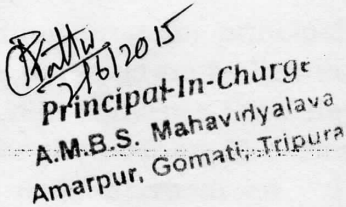 2/6/2015
Principal-In-Charge
A.M.B.S. Mahavidyalaya
Amarpur, Gomati, Tripura